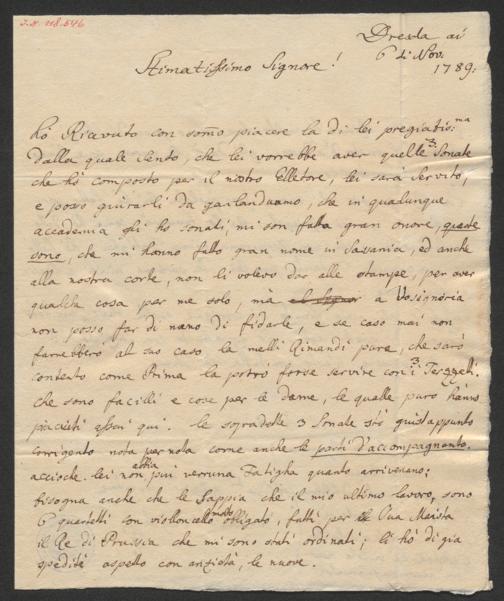 J.N. 118.646
Dresda ai
6 di Nov:
1789:
Stimatissimo Signore!
hò Ricevuto con som̃o piacere la di lei pregiatis:ma
dalla quale sento, che lei vorrebbe aver quelle 3: Sonate
che hò composto per il nostro Ellettore, lei sarà servito,
e posso giurarli da galanduomo, che in qualunque
accademia gli hò sonati, mi son fatta gran onore, queste
sono, che mi hanno fatto gran nome in Sassonia, ed anche
alla nostra corte, non li volevo dar alle stampe, per aver
qualche cosa per me solo, mà a Vosignoria
non posso far di meno di fidarle, e se caso mai non
farebbero al suo caso la melli Rimandi pure, che sarò
contento come Prima la potrò forse servire con i 3 Terzetti
che sono facilli e cose per le dame, le qualle pure hanno
piacciuti assai qui. le sopradette 3 Sonate stò giust appunto
corrigento nota per nota come anche le parti d'accompagnanto.
accioche lei non abbia più verruna Fatigha quanto arriverano;
bisogna anche che le Sappia che il mio ultimo lavoro, sono
6 quartetti con violloncello obligato, fatti per Sua Maista
il Re di Prussia che mi sono stati ordinati; li hò di già
spedite aspetto con anzietà, le nuove.